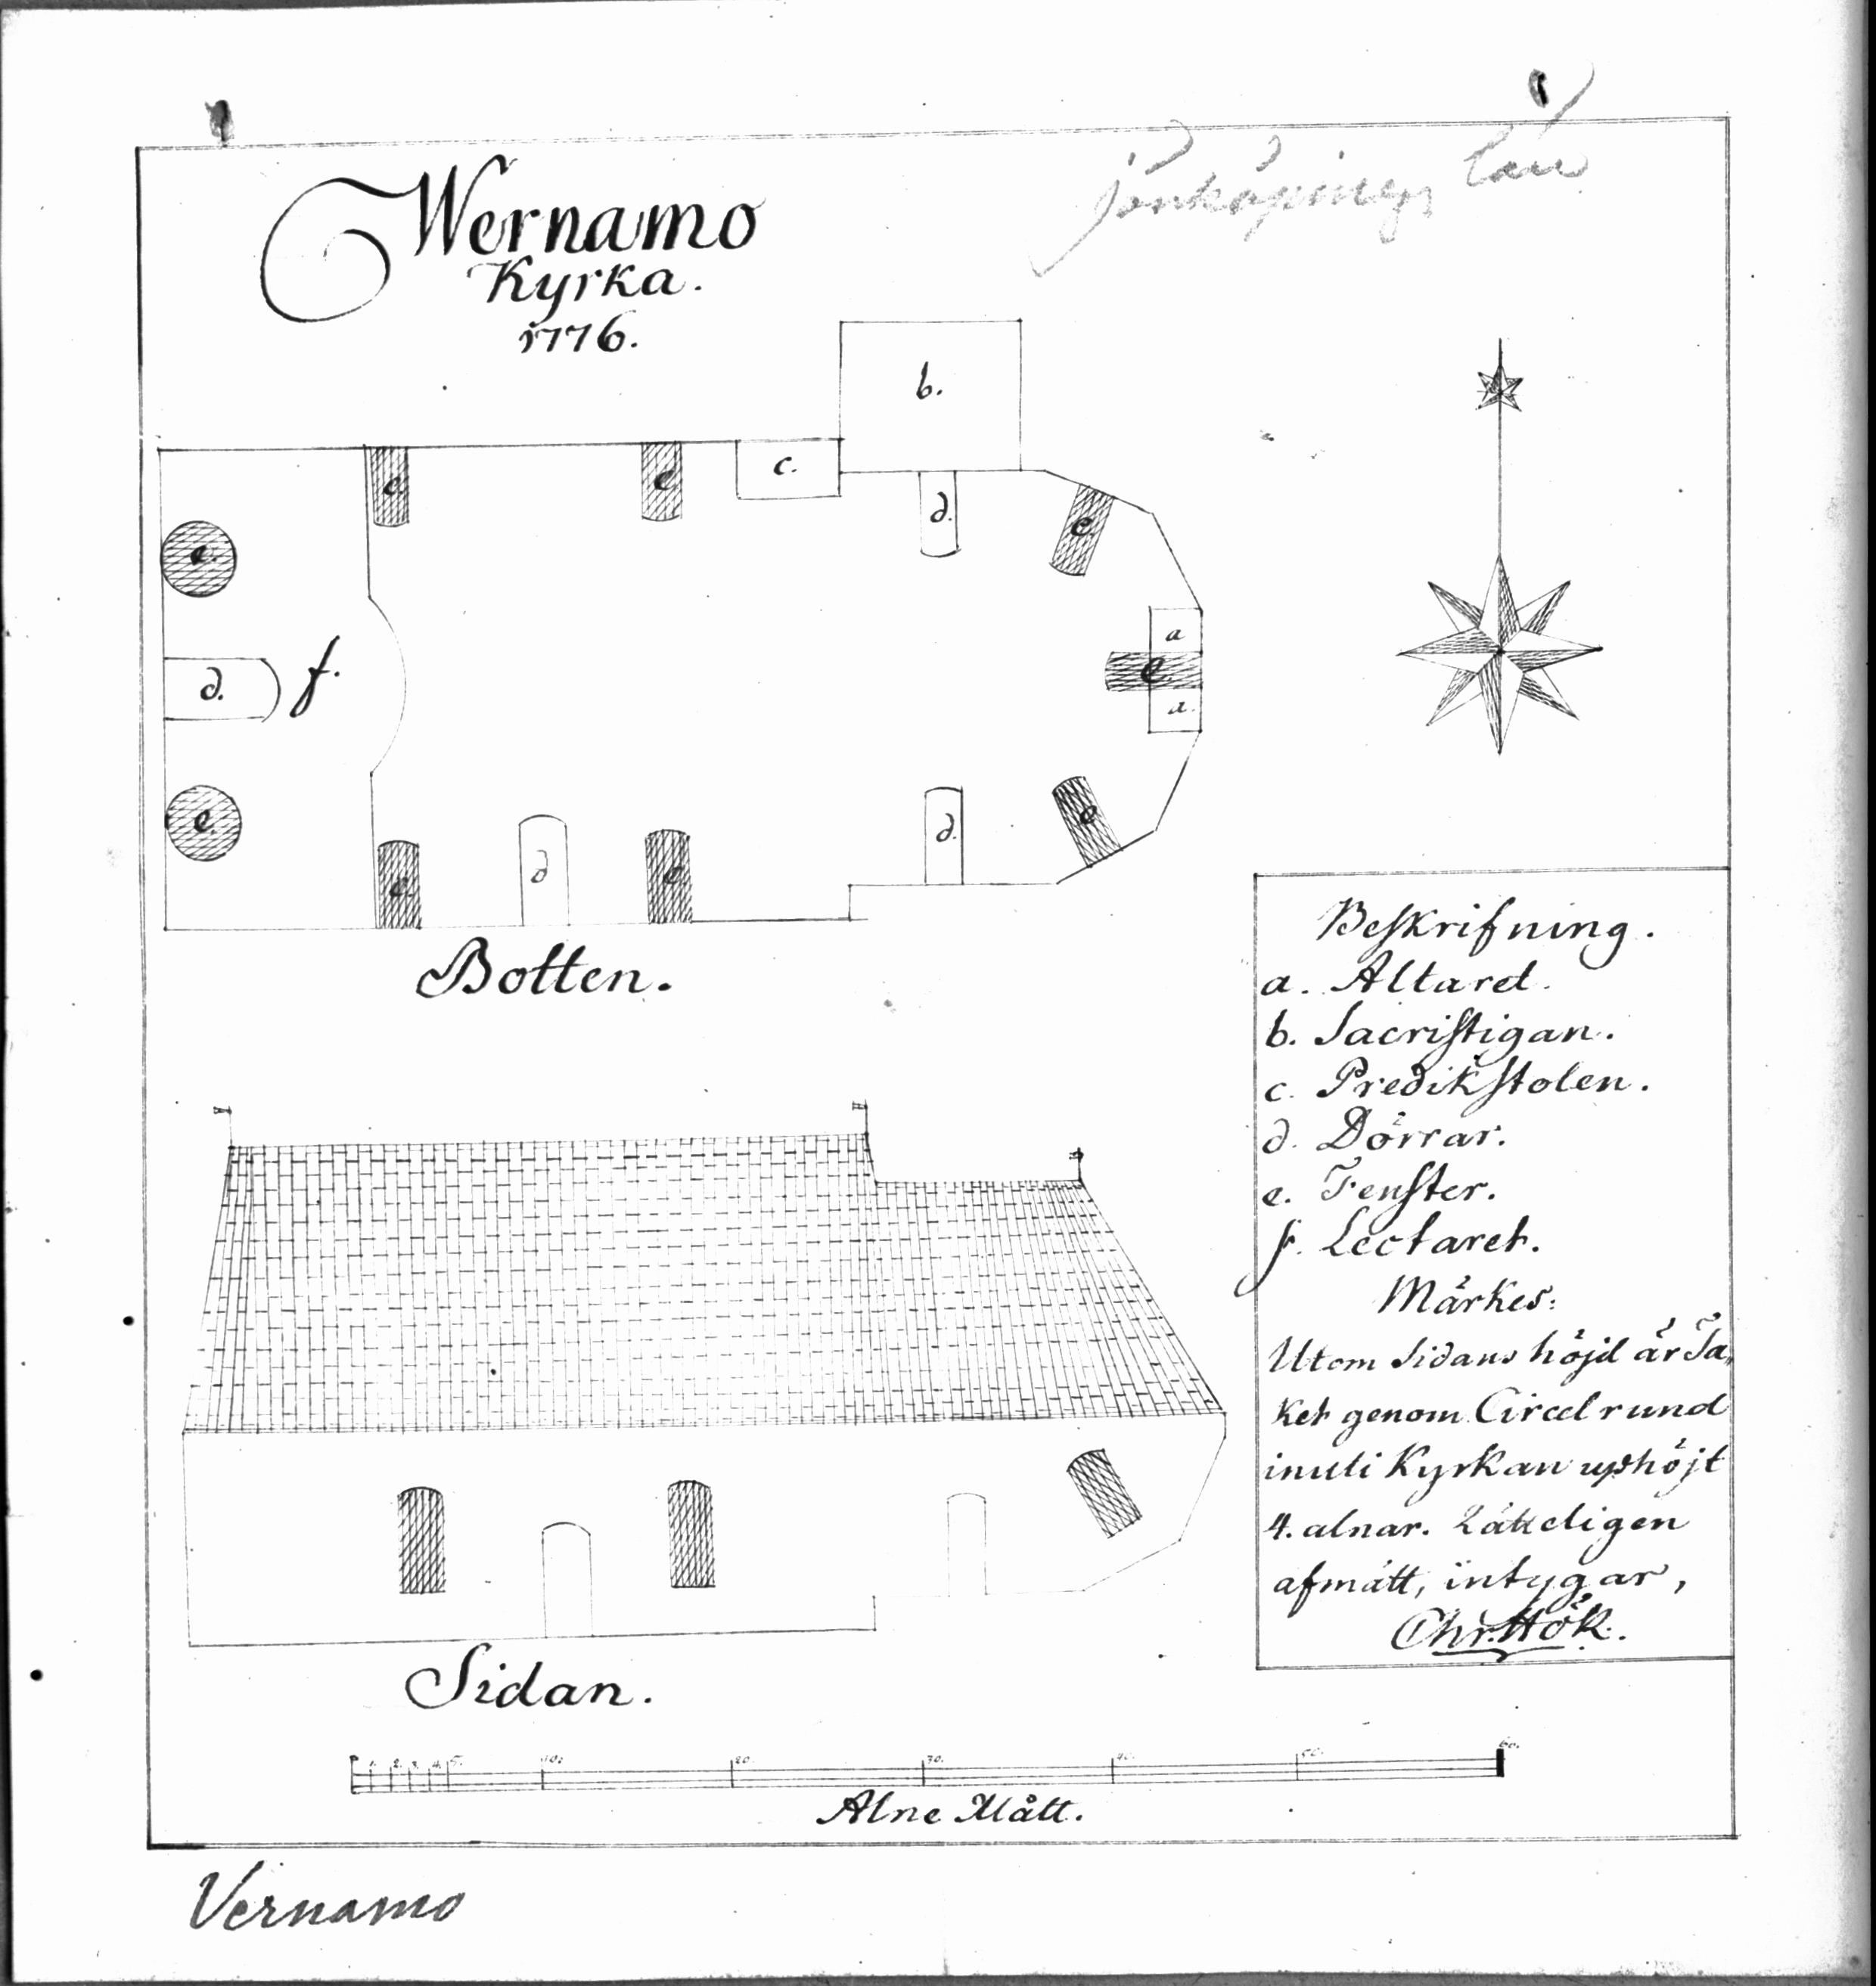 Jönköpings Län
Wernamo
Kyrka.
1776.
b.
e. e c.
d.
e
e.
a
d. f. e
a.
e.
d.
e
e d e
Botten.
Beskrifning.
a. Altaret.
b. Sacristigan.
c. Predikstolen.
d. Dörrar.
e. Fenster.
f. Lectaret.
Märkes:
Utom Sidans höjd är Ta„
ket genom Circelrund
inuti Kyrkan uphöjt
4. alnar.
afmätt, intygar,
Chr. Hök.
Sidan.
1. 2. 3. 4. 5. 10. 20. 30. 40. 50. 60.
Alne Mått.
Vernamo